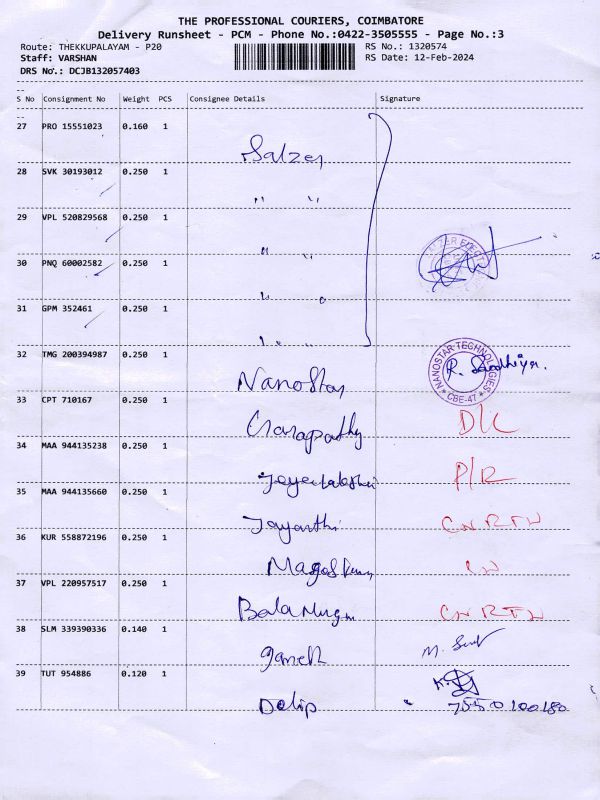 THE PROFESSIONAL COURIERS, COIMBATORE
Delivery Runsheet - PCM - Phone No.:0422-3505555 - Page No.:3
Route: THEKKUPALAYAM - P20 RS No.: 1320574
Staff: VARSHAN RS Date: 12-Feb-2024
DRS No.: DCJB132057403
S No Consignment No Weight PCS Consignee Details Signature
27 PRO 15551023 0.160 1
Salzer
28 SVK 30193012 0.250 1
" "
29 VPL 520829568 0.250 1
" "
30 PNQ 60002582 0.250 1
" "
31 GPM 352461 0.250 1
" "
32 TMG 200394987 0.250 1
NANOSTAR TECHNOLOGIES
CBE-47
R. Sandhiya.
NanoStar
33 CPT 710167 0.250 1
Ganapathy D/C
34 MAA 944135238 0.250 1
P/R
35 MAA 944135660 0.250 1
Jayanthi CN RTN
36 KUR 558872196 0.250 1
37 VPL 220957517 0.250 1
Bala Murgn CN RTN
38 SLM 339390336 0.140 1
Ganesh
39 TUT 954886 0.120 1
Dilip 7550100180